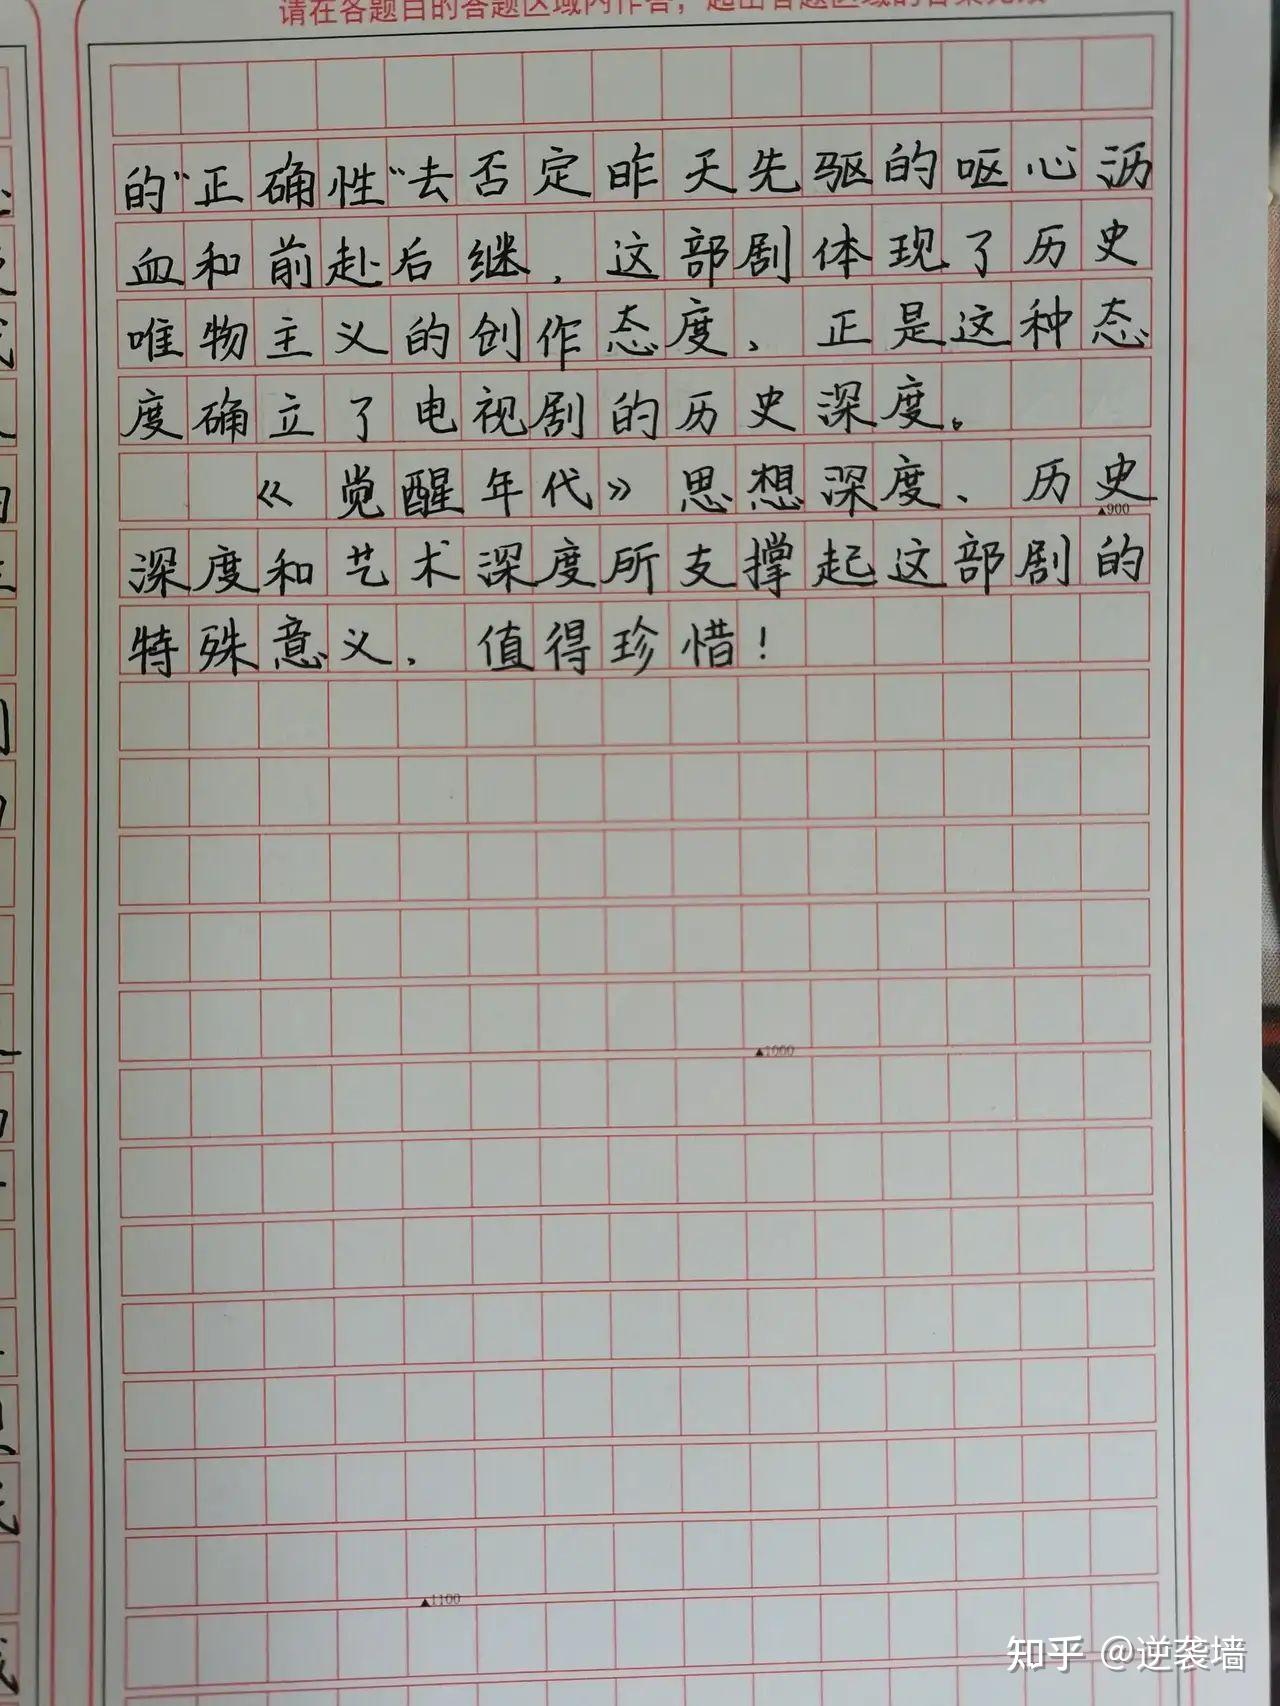 请在各题目的答题区域内作答，超出答题区域的答案无效
的“正确性”去否定昨天先驱的呕心沥
血和前赴后继，这部剧体现了历史
唯物主义的创作态度，正是这种态
度确立了电视剧的历史深度。
《觉醒年代》思想深度、历史
▲900
深度和艺术深度所支撑起这部剧的
特殊意义，值得珍惜！
▲1000
▲1100
知乎 @逆袭墙